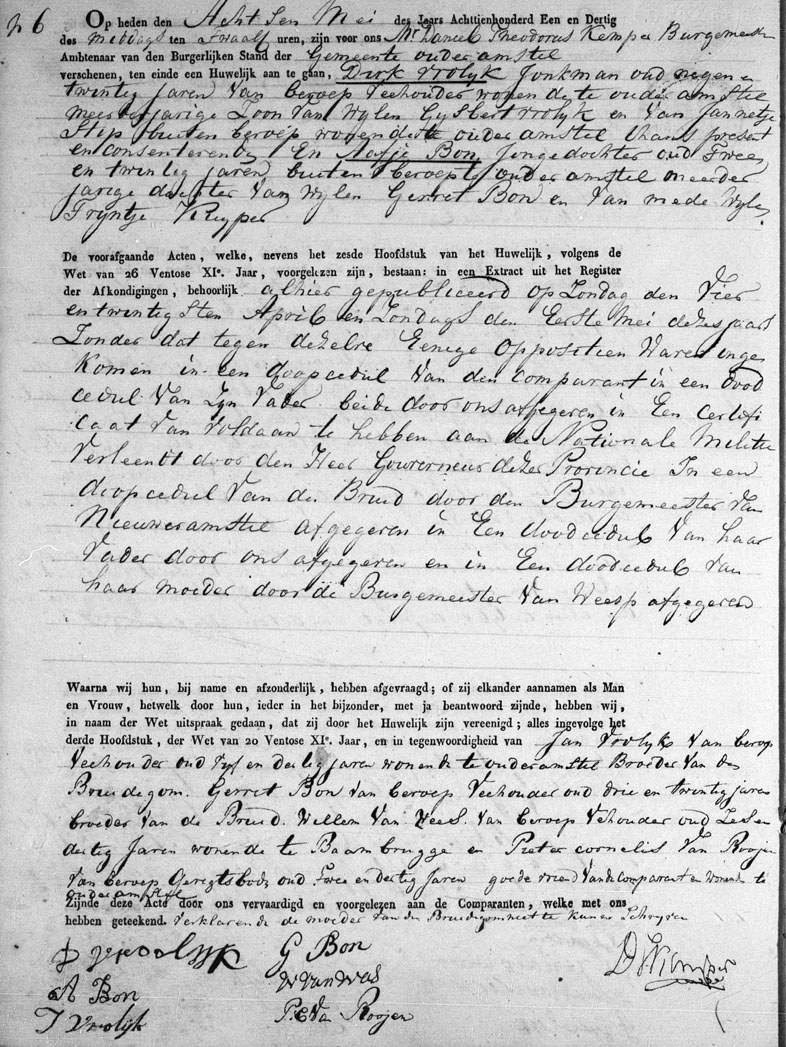 N 6
Op heden den Acht Sen Mei des Jaars Achttjenhonderd Een en Dertig
des middags ten Twaalf uren, zijn voor ons Mr Daniel Theodorus Kemper Burgemeester
Ambtenaar van den Burgerlijken Stand der Gemeente ouder amstel
verschenen, ten einde een Huwelijk aan te gaan, Dirk Vrolyk Jonkman oud negen en
twintig jaren Van beroep Veehouder wonende te ouder amstel
meerderjarige Zoon Van Wylen Gysbert Vrolyk en Van Jannetje
Stip buiten beroep wonende te ouder amstel thans present
en consenterende En Aafje Bon Jongedochter oud Twee
en twintig jaren buiten beroep te ouder amstel meerder
jarige dochter Van Wylen Gerret Bon en Van mede Wylen
Tryntje Kuyper
De voorafgaande Acten, welke, nevens het zesde Hoofdstuk van het Huwelijk, volgens de
Wet van 26 Ventose XIe. Jaar, voorgelezen zijn, bestaan: in een Extract uit het Register
der Afkondigingen, behoorlijk alhier gepubliceerd op Zondag den Vier
en twintig Sten April en Zondags den Eerste Mei dezes jaars
Zonder dat tegen dezelve Eenige Oppositien Waren inge
komen in een doopcedul Van den Comparant in een dood
cedul Van Zyn Vader beide door ons afgegeven in Een Certifi
caat Van Voldaan te hebben aan de Nationale Militie
Verleendt door den Heer Gouverneur dezer Provincie In een
doopcedul Van de Bruid door den Burgemeester Van
Nieuweramstel afgegeven in Een doodcedul Van haar
Vader door ons afgegeven en in Een doodcedul van
haar moeder door de Burgemeester Van Weesp afgegeven
Waarna wij hun, bij name en afzonderlijk, hebben afgevraagd; of zij elkander aannamen als Man
en Vrouw, hetwelk door hun, ieder in het bijzonder, met ja beantwoord zijnde, hebben wij,
in naam der Wet uitspraak gedaan, dat zij door het Huwelijk zijn vereenigd; alles ingevolge het
derde Hoofdstuk, der Wet van 20 Ventose XIe. Jaar, en in tegenwoordigheid van Jan Vrolyk Van beroep
Veehouder oud Vyf en dertig jaren wonende te ouderamstel Broeder Van den
Bruidegom. Gerret Bon Van beroep Veehouder oud drie en twintig jaren
broeder Van de Bruid. Willem Van Wees. Van beroep Vehouder oud Zes en
dertig Jaren wonende te Baambrugge en Pieter cornelis Van Roojen
Van beroep Geregtsbode oud Twee en dertig Jaren goede vriend Van de Comparant en Wonende te
ouder amstel
Zijnde deze Acte door ons vervaardigd en voorgelezen aan de Comparanten, welke met ons
hebben geteekend. Verklarende de moeder van den Bruidegom niet te kunnen Schryven
D Vroolijk G Bon
A Bon W Van Was D T Kemper
J Vrolijk P. C Van Roojen